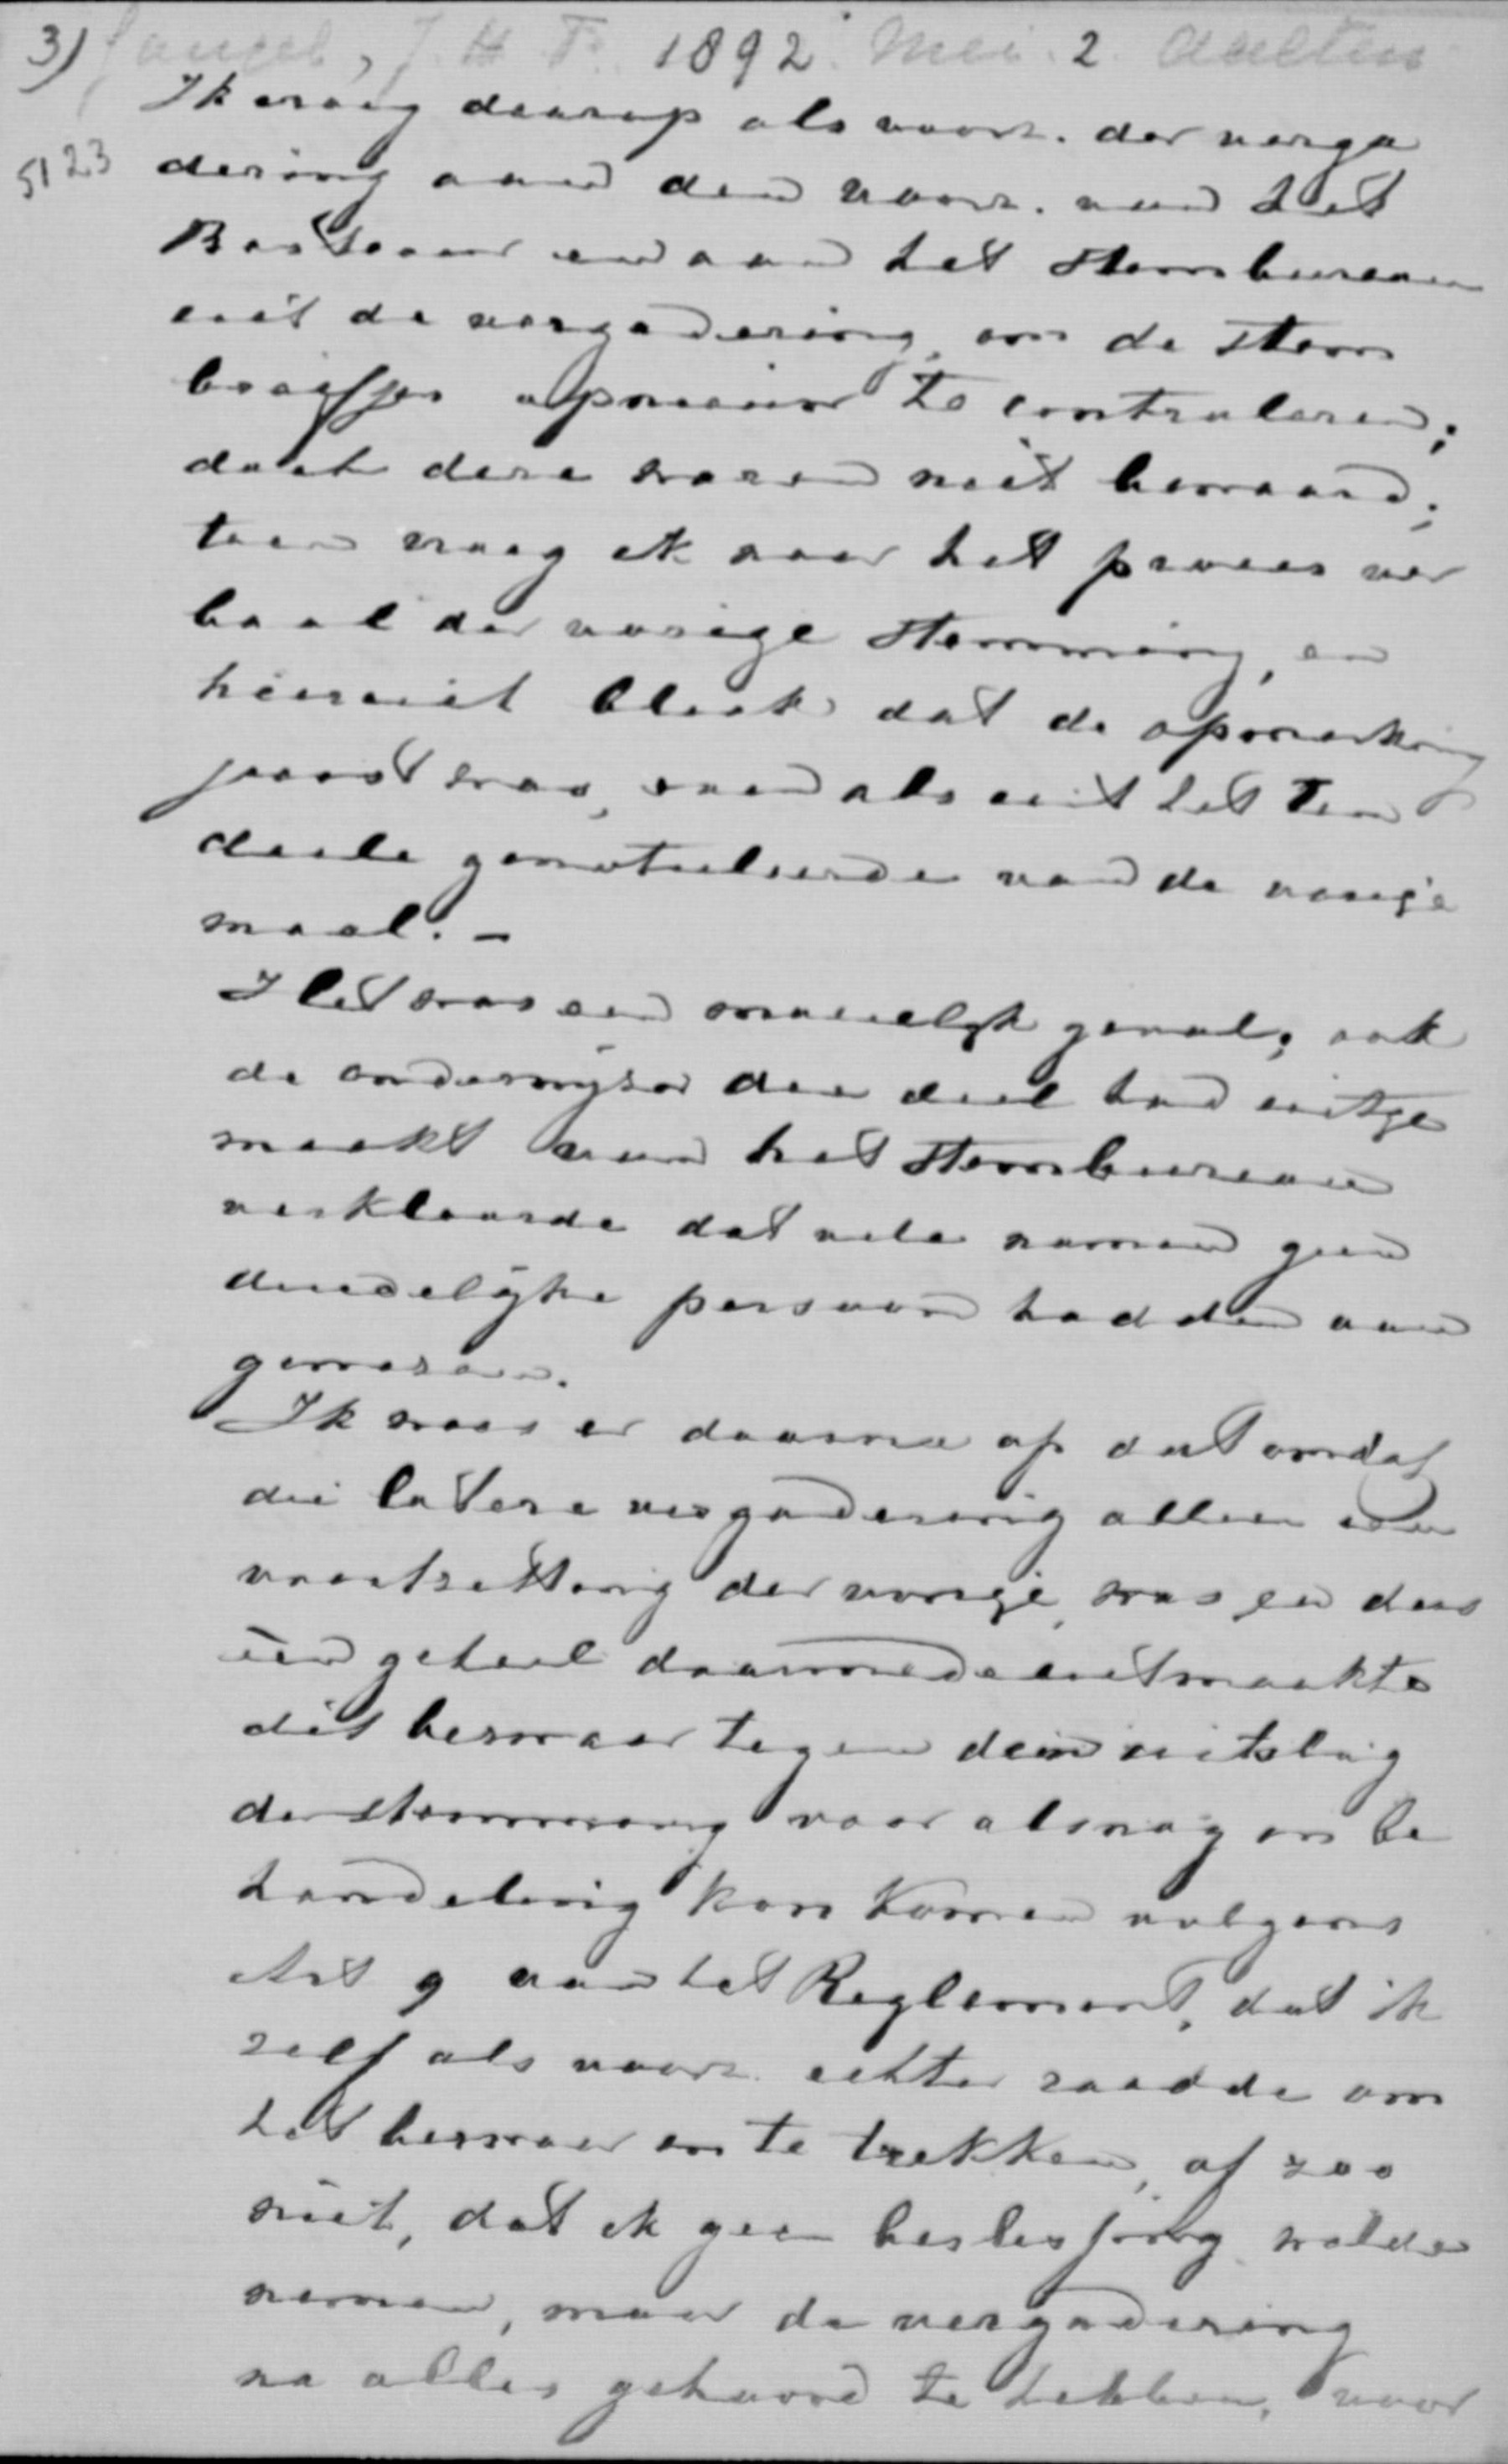 3) Gangel, J. H. F. 1892 Mei. 2 Aalten
5123
Ik vroeg daarop als voorz. der verga
dering aan den voorz. van het
Bestuur en aan het Stembureau
uit de vergadering, om de stem
briefjes opnieuw te controleren;
doch deze waren niet bewaard;
toen vroeg ik naar het proces ver
baal der vorige Stemming, en
hieruit bleek dat de opmerking
juist was, even als uit het ten
deele genotuleerde van de vorige
maal. -
Het was een moeielijk geval; ook
de onderwijzer die deel had uitge
maakt van het Stembureau
verklaarde dat vele namen geen
duidelijke persoon hadden aan
gewezen.
Ik wees er daarna op dat omdat
die latere vergadering alleen een
voortzetting der vorige was en dus
één geheel daarmede uitmaakte
dit bezwaar tegen den uitslag
der stemming voor alsnog in be
handeling kon komen volgens
Art 9 van het Reglement, dat ik
zelf als voorz. echter raadde om
het bezwaar in te trekken, of zoo
niet, dat ik geen beslissing wilde
nemen, maar de vergadering
na alles gehoord te hebben, voor